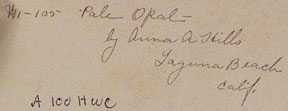 W1-105 - Pale Opal -
by Anna A Hills
Laguna Beach
Calif.
A 100 HWC